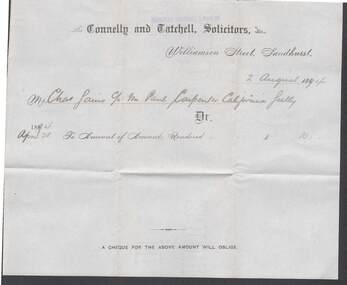 Connelly and Tatchell, Solicitors,
Williamson Street, Sandhurst.
2 August 1894
Mr Chas c/o Mr Carpenter California Gully
Dr.
1894
April To Amount of Account Rendered
A CHEQUE FOR THE ABOVE AMOUNT WILL OBLIGE.